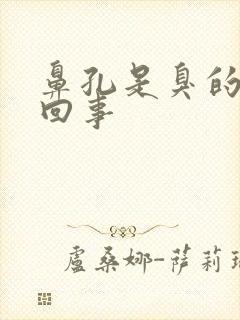 鼻孔是臭的
回事
盧桑娜-薩莉